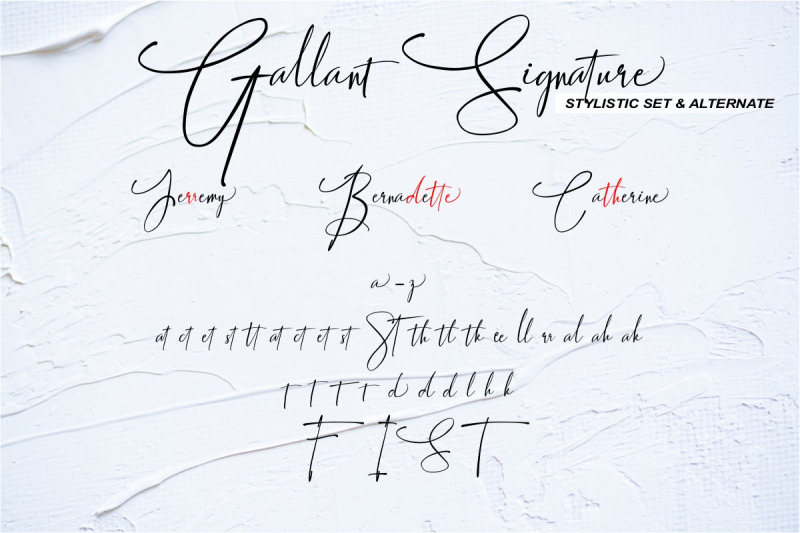 Gallant Signature
STYLISTIC SET & ALTERNATE
Jerremy Bernadette Catherine
a - z
at ct et st tt at ct et st St th tl tk ee ll rr al ah ak
t t t t d d d l h k
F I S T